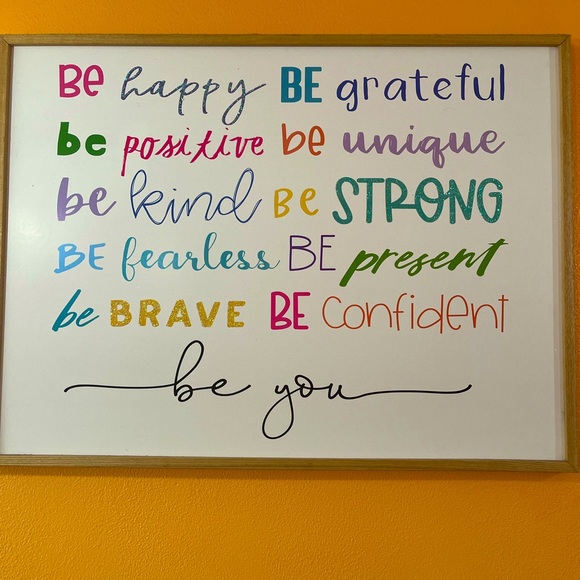 Be happy BE grateful
be positive be unique
be kind BE STRONG
BE fearless BE present
be BRAVE BE Confident
be you